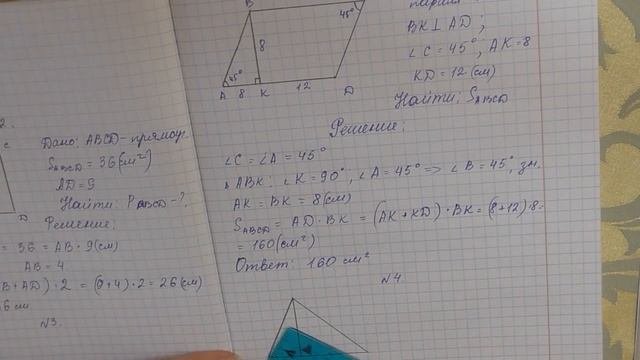 2.
C
Дано: ABCD - прямоуг.
S ABCD = 36 (см²)
AD = 9
Найти: P ABCD - ?
D
Решение:
= 36 = AB · 9 (см)
AB = 4
B + AD) · 2 = (9+4) · 2 = 26 (см)
6 см
№3.
B
45°
8
45°
A 8 K 12 D
BK ⊥ AD;
∠C = 45°; AK = 8
KD = 12 (см)
Найти: S ABCD
Решение:
∠C = ∠A = 45°
△ ABK: ∠K = 90°, ∠A = 45° => ∠B = 45°, зн.
AK = BK = 8 (см)
S ABCD = AD · BK = (AK + KD) · BK = (8+12) · 8 =
= 160 (см²)
Ответ: 160 см²
№4